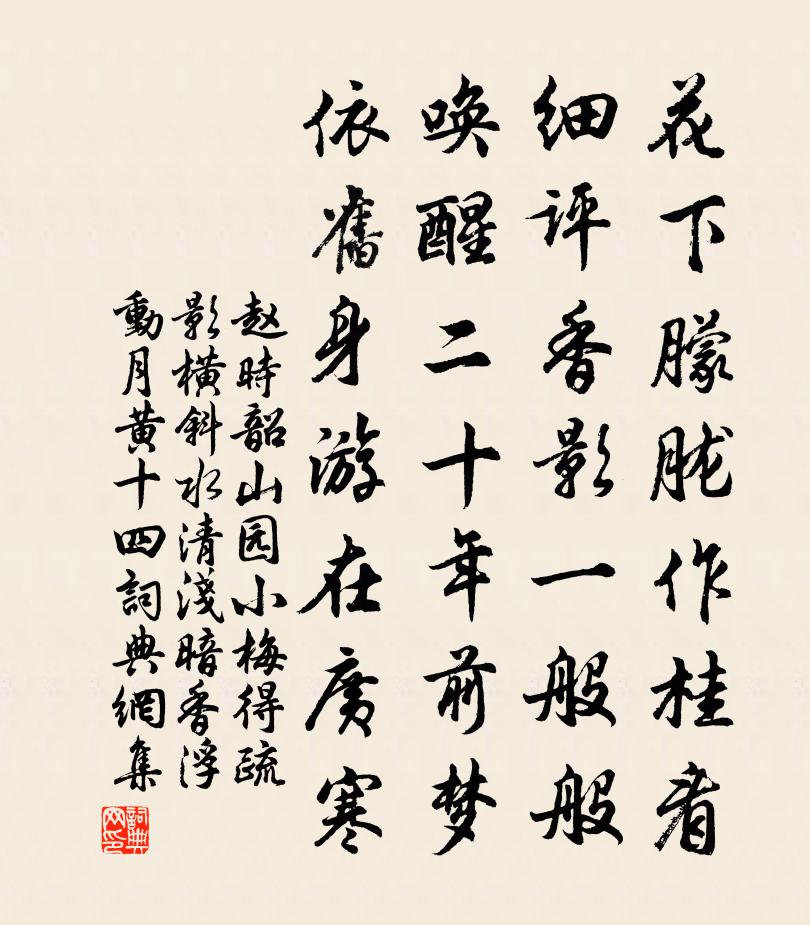 花下朦胧作桂看
细评香影一般般
唤醒二十年前梦
依舊身游在廣寒
赵時韶山园小梅得疏
影横斜水清淺暗香浮
動月黄十四詞典網集
詞典
网印